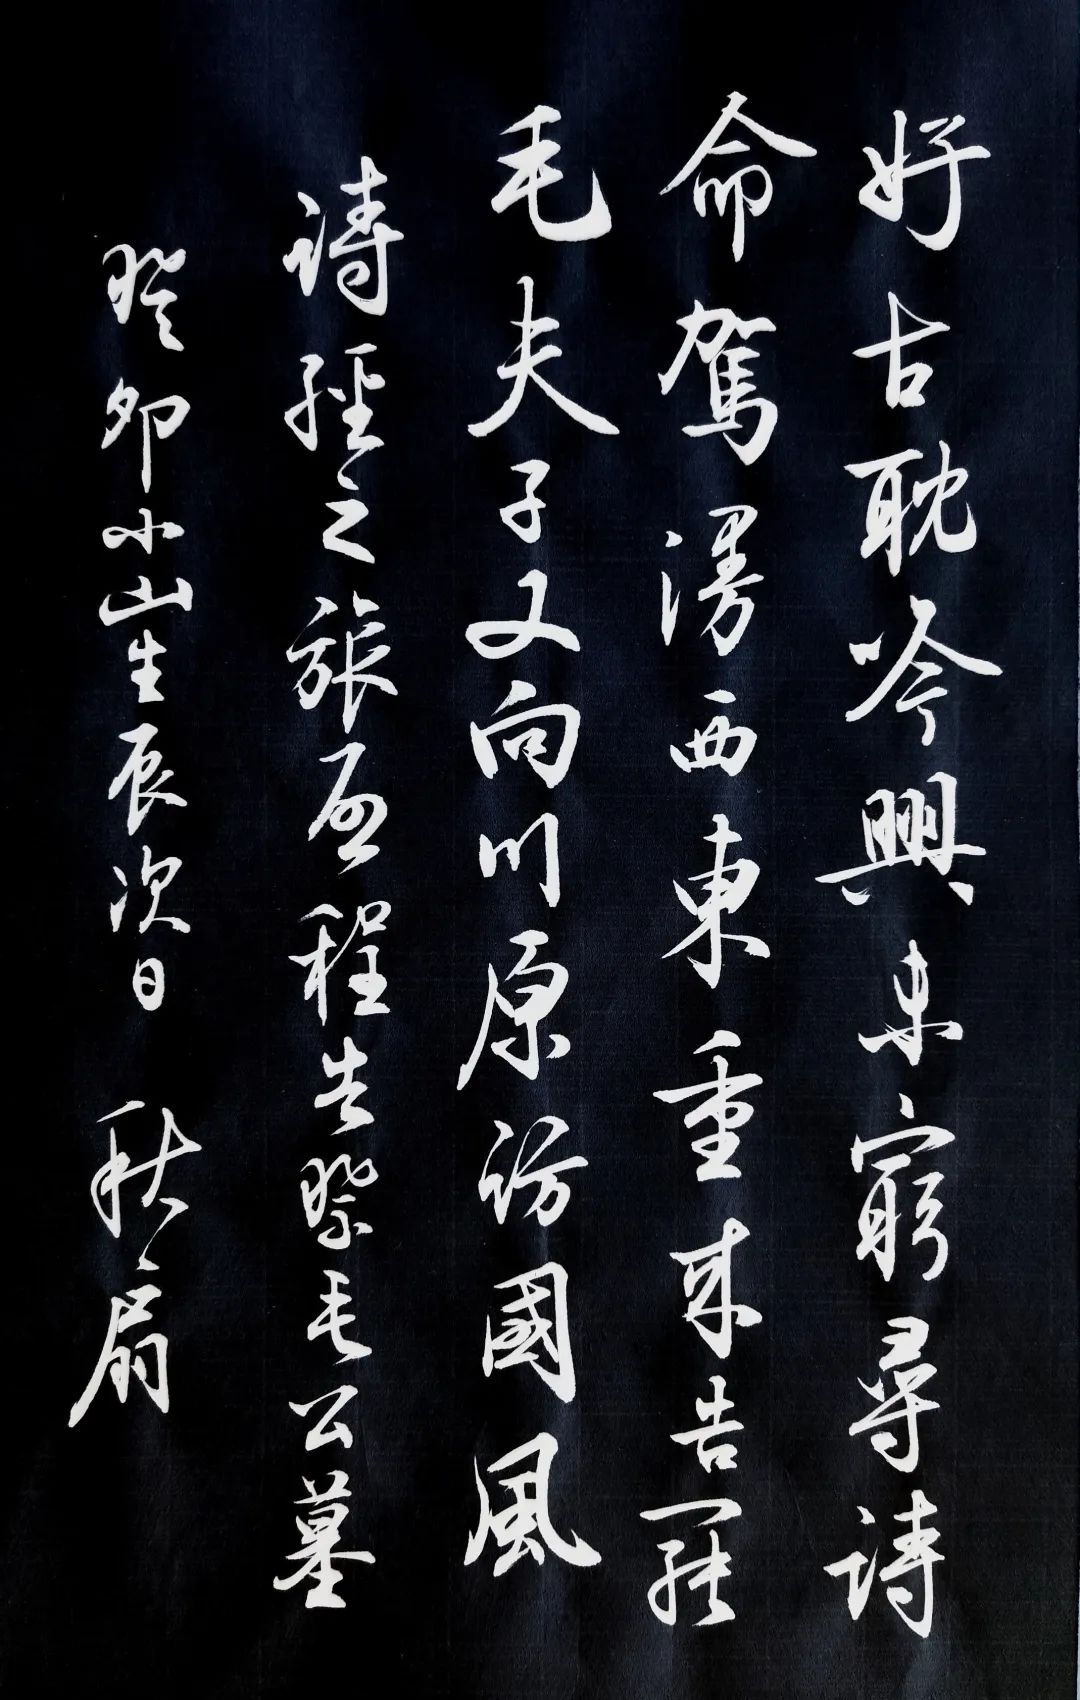 好古耽吟興未窮尋詩
命駕漫西東重來告罷
毛夫子又向川原訪國風
詩經之旅啟程告祭毛公墓
癸卯小山生辰次日 秋扇